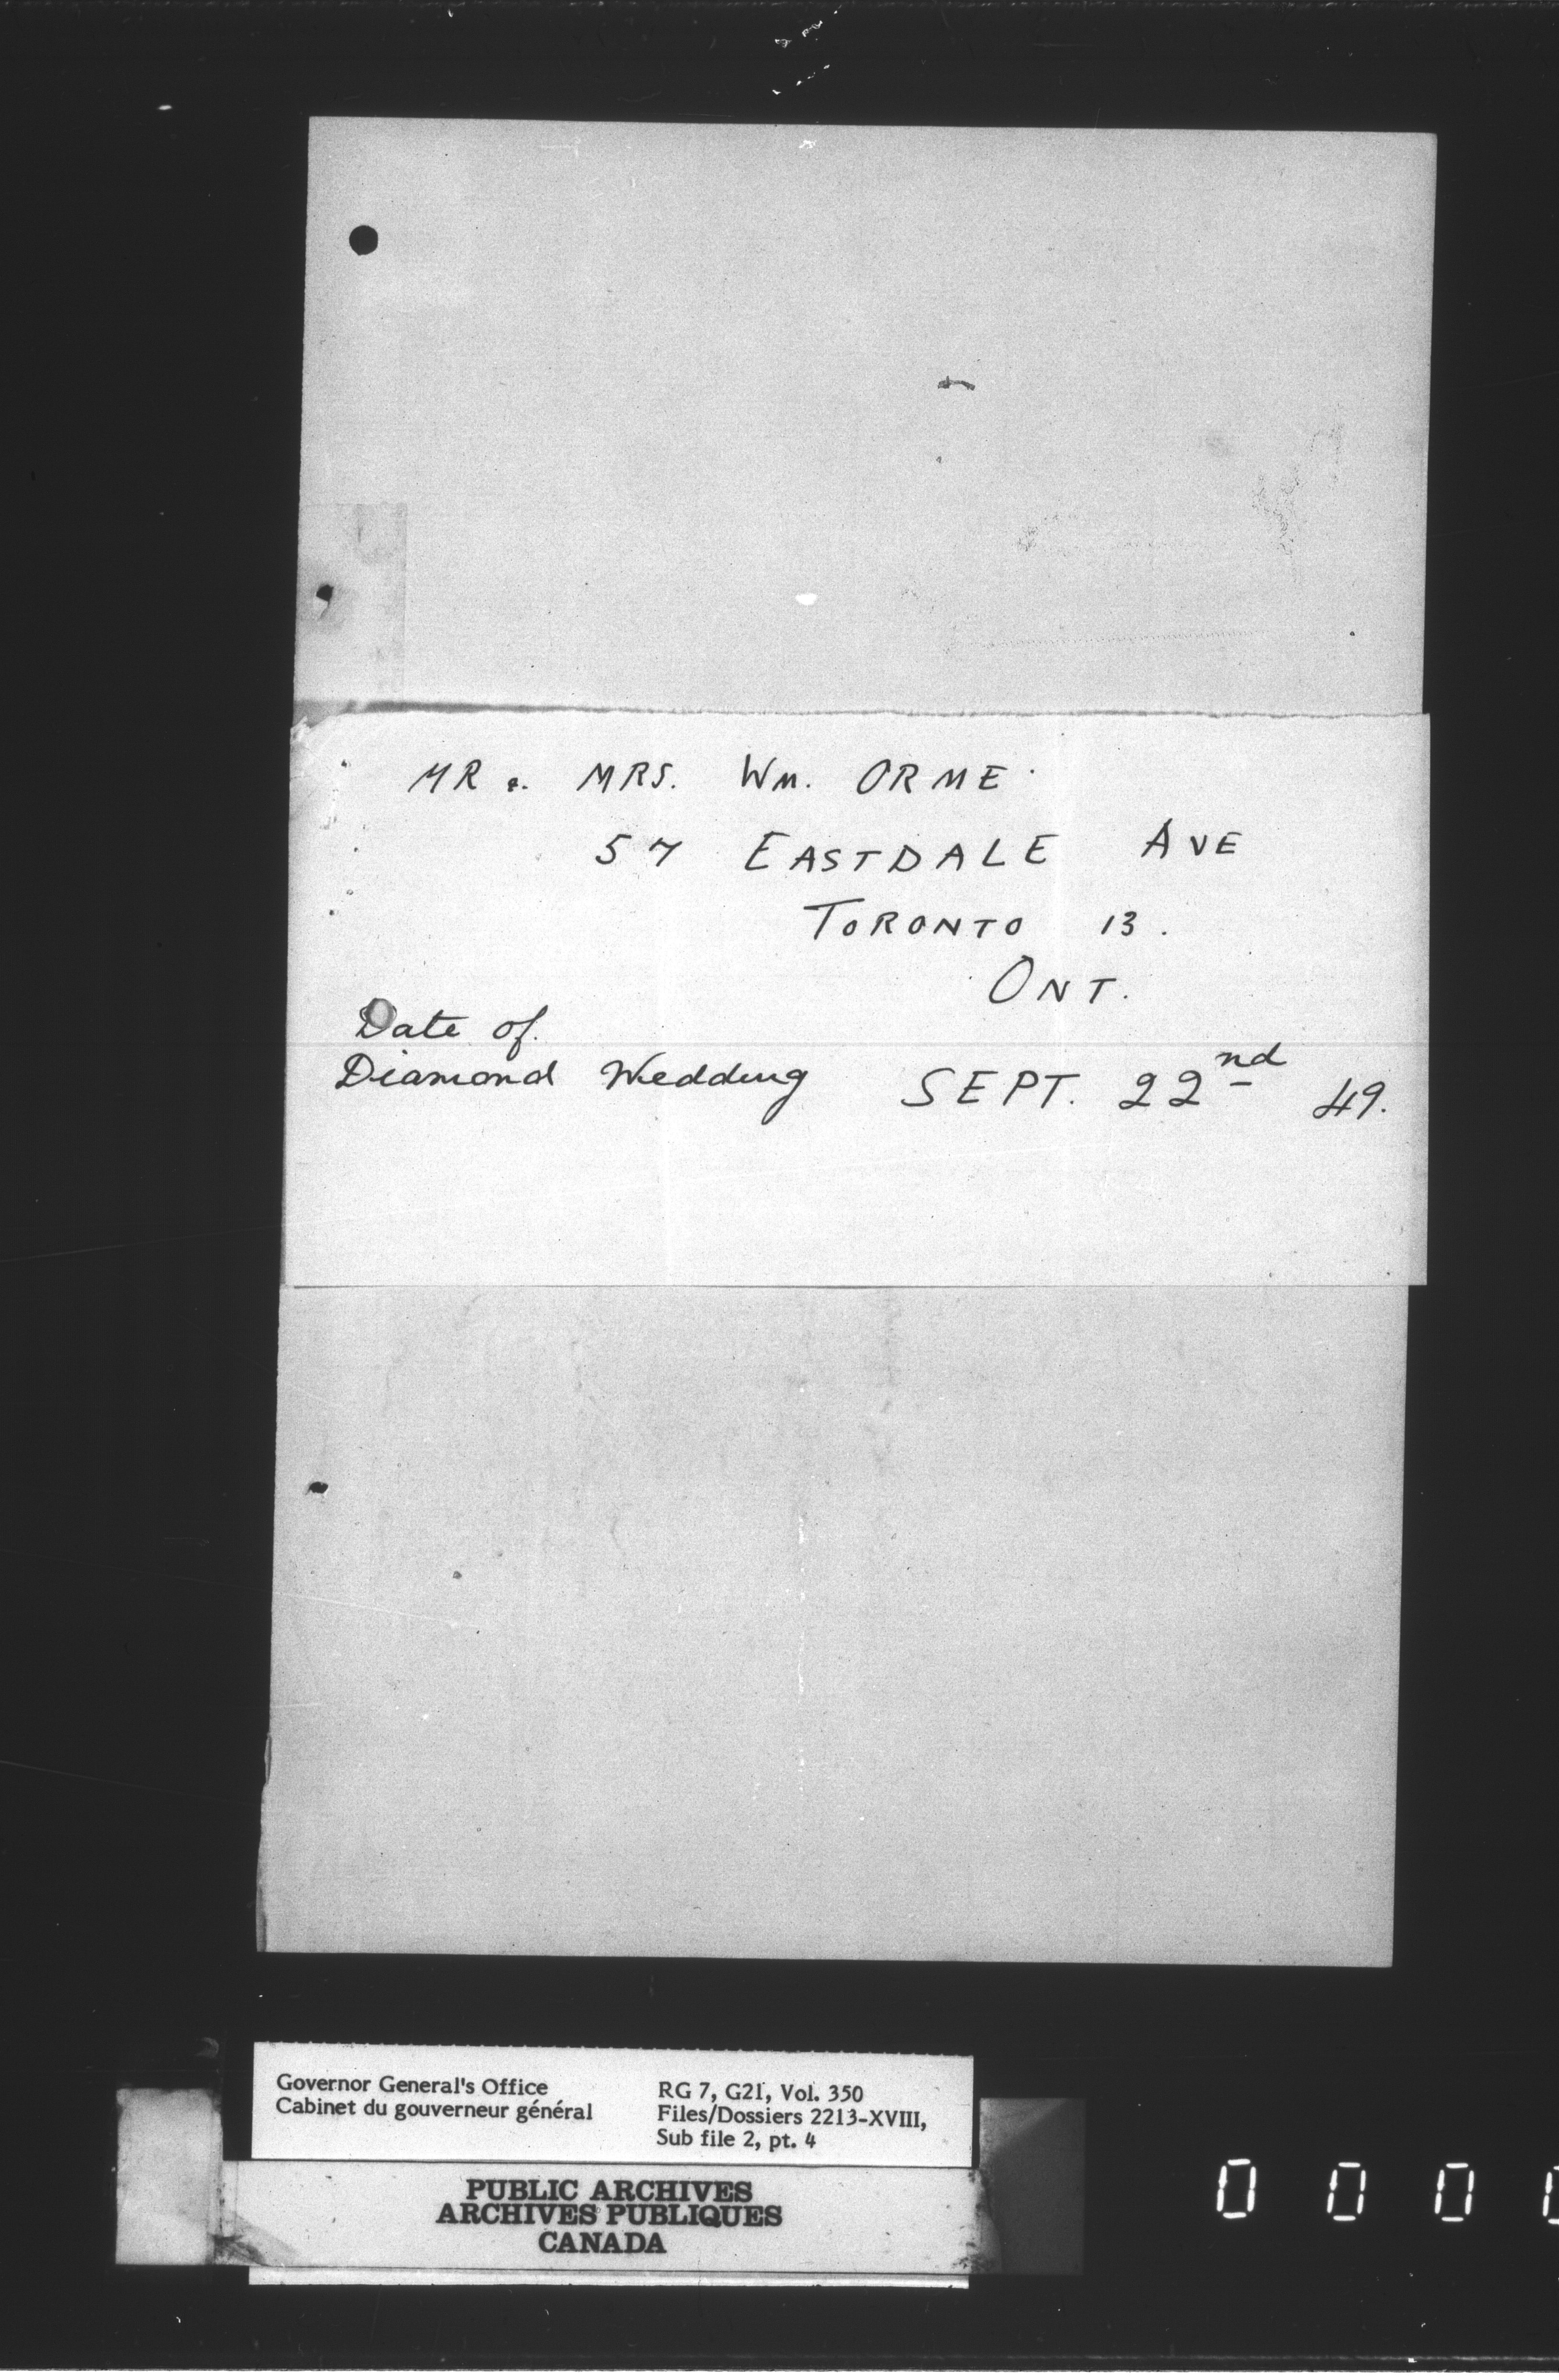 MR & MRS. WM. ORME
57 EASTDALE AVE
TORONTO 13.
ONT.
Date of
Diamond Wedding SEPT. 22nd 49.
Governor General's Office
Cabinet du gouverneur général
RG 7, G21, Vol. 350
Files/Dossiers 2213-XVIII,
Sub file 2, pt. 4
PUBLIC ARCHIVES
ARCHIVES PUBLIQUES
CANADA
0 0 0